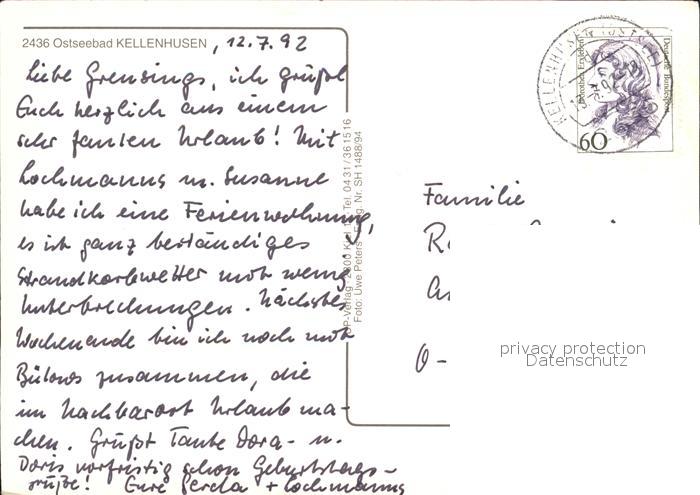 2436 Ostseebad KELLENHUSEN, 12.7.92
Liebe Grensings, ich grüße
Euch herzlich aus einem
sehr faulen Urlaub! Mit
Lochmanns u. Susanne
habe ich eine Ferienwohnung,
es ist ganz beständiges
Strandkorbwetter mit wenig
Unterbrechungen. Nächstes
Wochenende bin ich noch mit
Bülows zusammen, die
im Nachbarort Urlaub ma-
chen. Grüßt Tante Dora u.
Doris vorfristig schon Geburtstags-
grüße! Eure + Lochmanns
Foto: Uwe Peters Nr. SH 1488/94
Tel. 0431/361516
KELLENHUSEN (OSTSEE)
Dorothea Erxleben
Deutsche Bundespost
60
Familie
O-
privacy protection
Datenschutz